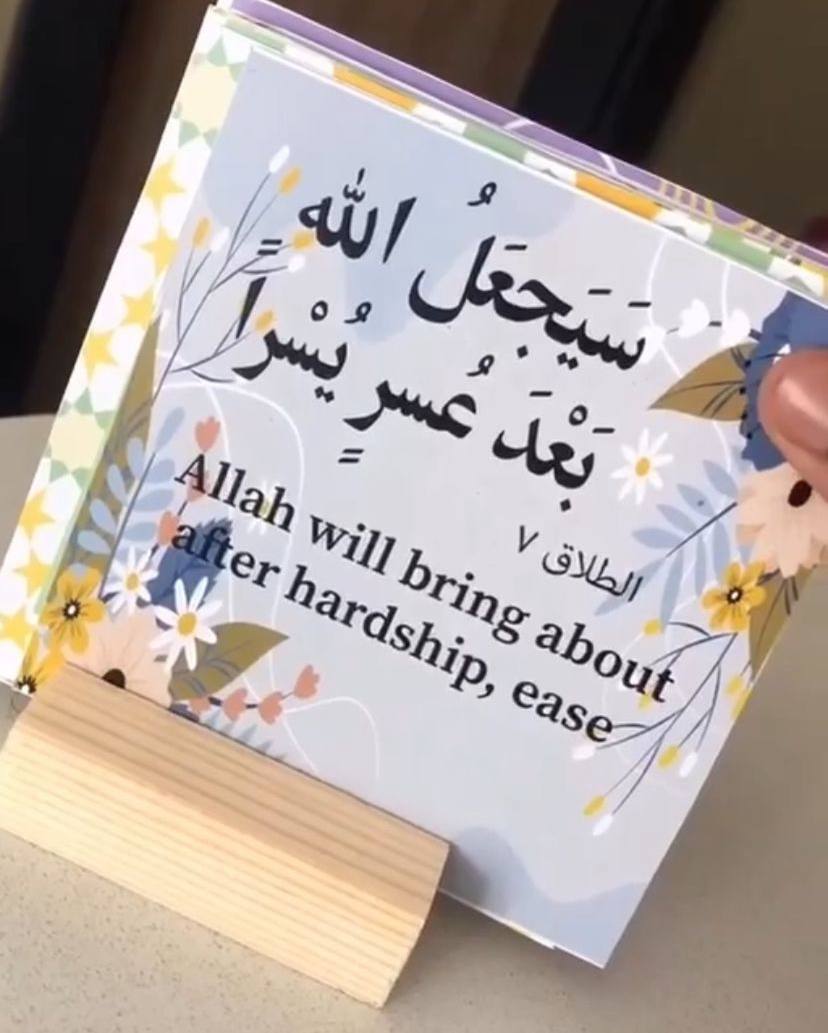 سَيَجعَلُ اللّٰه
بَعْدَ عُسرٍ يُسْراً
الطلاق ٧
Allah will bring about
after hardship, ease